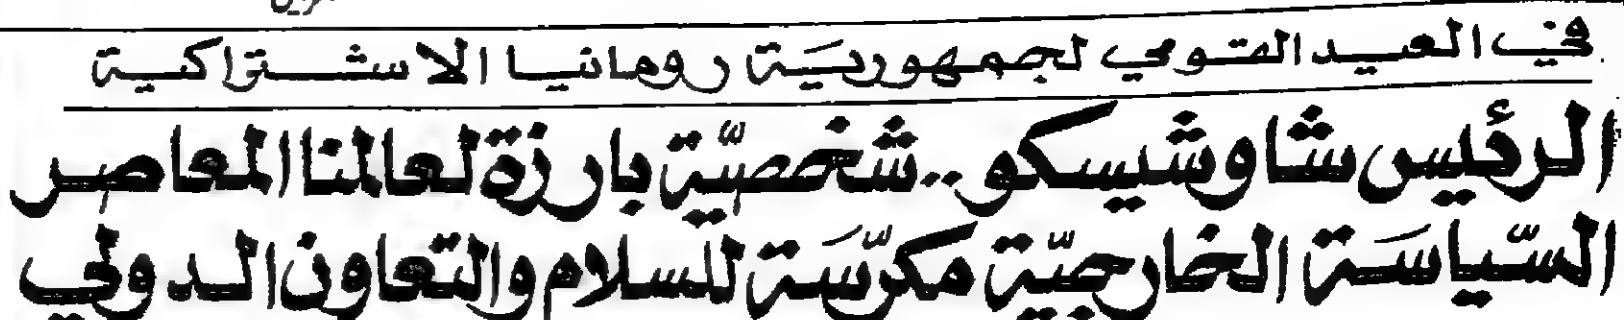 في العيد القومي لجمهوريَة رومانيا الاشتراكية
الرئيس شاوشيسكو.. شخصيّة بارزة لعالمنا المعاصر
السّياسَة الخارجيّة مكرّسَة للسلام والتعاون الدولي